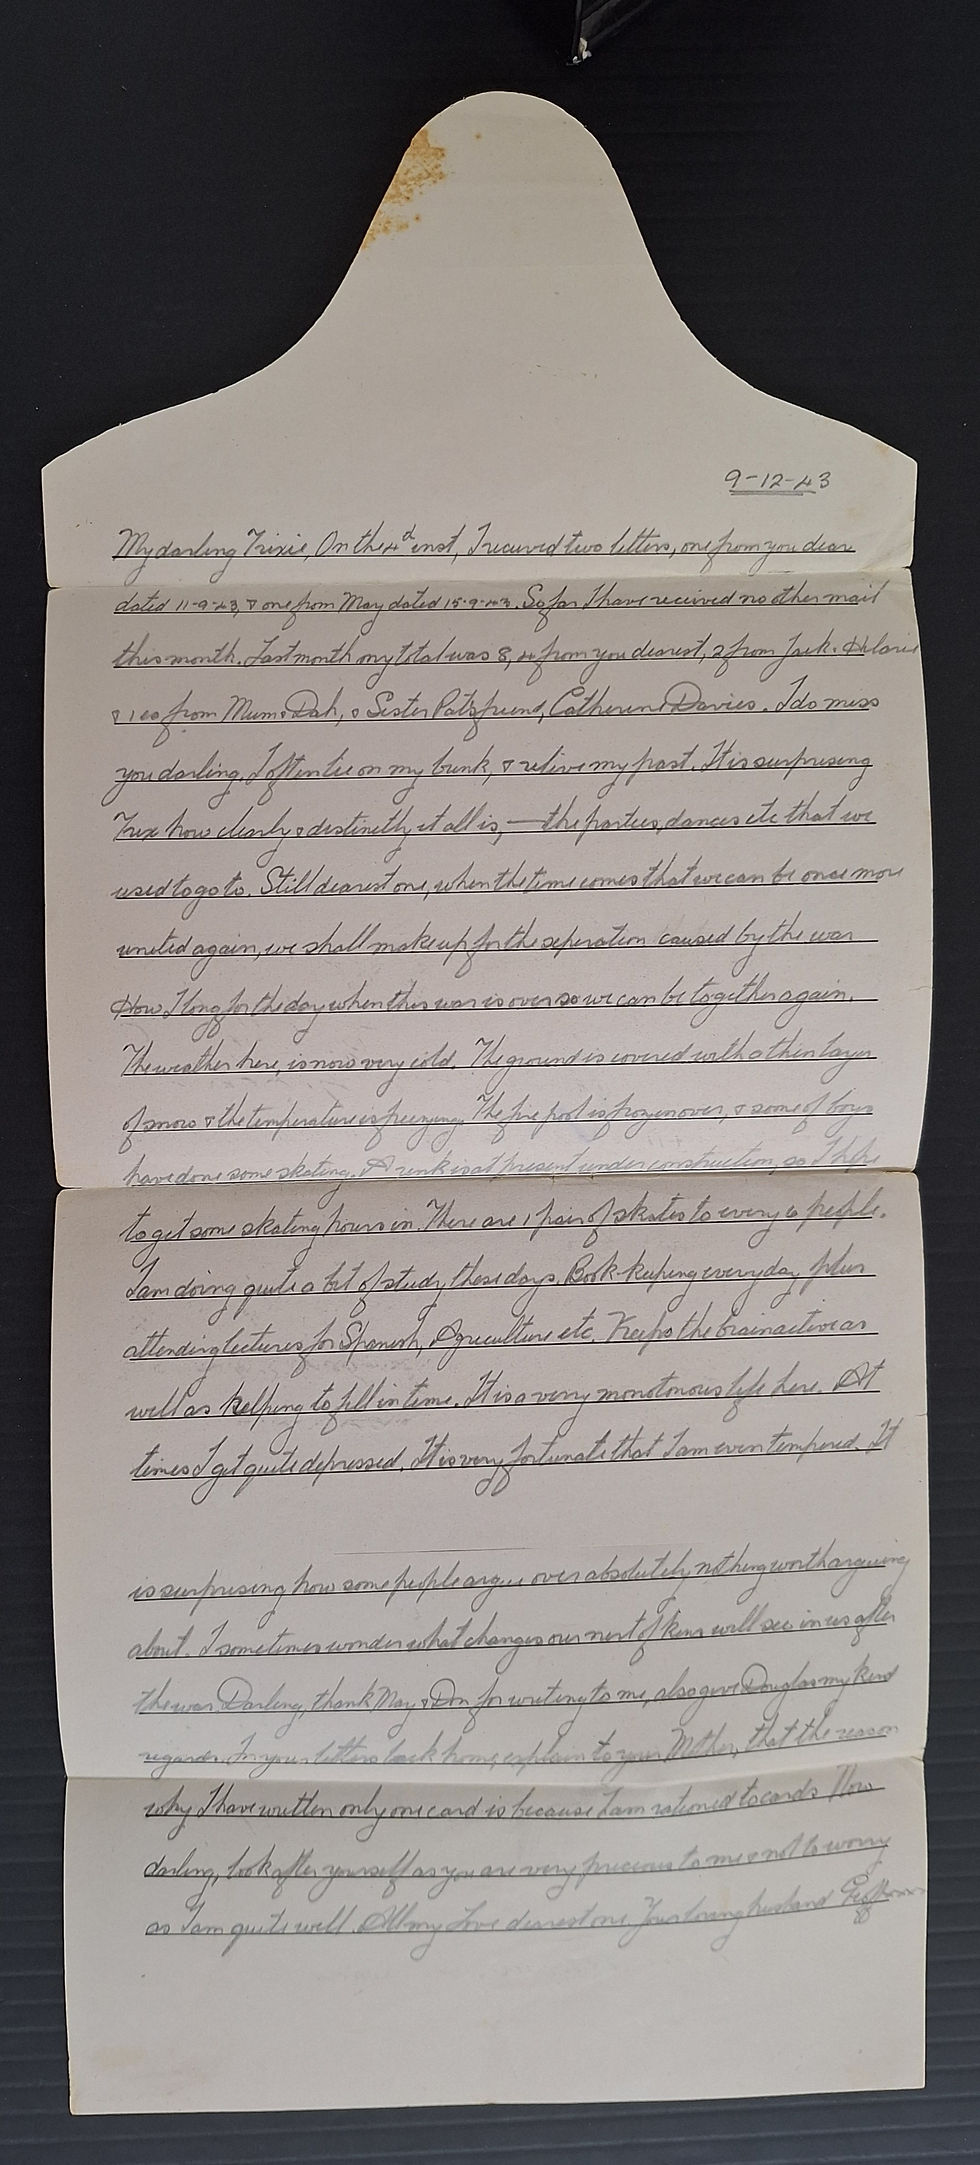 9-12-43
My darling Trixie, On the 4th inst, I received two letters, one from you dear
dated 11-9-43, & one from May dated 15-9-43. So far I have received no other mail
this month. Last month my total was 8, 4 from you dearest, 2 from Jack & Hilarie
& 1 ea from Mum & Dah, & Sister Pat's friend, Catherine Davies. I do miss
you darling. I often lie on my bunk, & relive my past. It is surprising
Trix how clearly & distinctly it all is, — the parties, dances etc that we
used to go to. Still dearest one, when the time comes that we can be once more
united again, we shall make up for the seperation caused by the war
How I long for the day when this war is over so we can be together again.
The weather here, is now very cold. The ground is covered with a thin layer
of snow & the temperature is freezing. The fire pool is frozen over, & some of boys
have done some skating. A rink is at present under construction, so I hope
to get some skating hours in. There are 1 pair of skates to every 6 people.
I am doing quite a bit of study these days. Book-keeping everyday, plus
attending lectures for Spanish, Agriculture etc. Keeps the brain active as
well as helping to fill in time. It is a very monotonous life here. At
times I get quite depressed. It is very fortunate that I am even tempered. It
is surprising how some people argue over absolutely nothing worth arguing
about. I sometimes wonder what changes our next of kins will see in us after
the war. Darling, thank May & Don for writing to me, also give Douglas my kind
regards. In your letters back home, explain to your Mother, that the reason
why I have written only one card is because I am rationed to cards. Now
darling, look after yourself as you are very precious to me & not to worry
as I am quite well. All my Love dearest one. Your loving husband